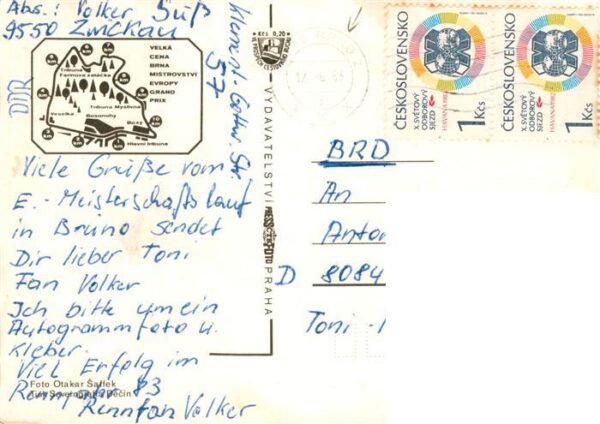 Abs.: Volker Süß
9550 Zwickau
Klement-Gottw. Str.
57
DDR
VELKÁ
CENA
BRNA
MISTROVSTVÍ
EVROPY
GRAND
PRIX
Tribuna
Farinova zatáčka
Tribuna Myslivna
Veselka
Bosonohy
Hlavní tribuna
Viele Grüße vom
E.-Meisterschaftslauf
in Brüno sendet
Dir lieber Toni
Fan Volker
Ich bitte um ein
Autogrammfoto u.
Kleber.
Viel Erfolg im
Rennjahr 83
Rennfan Volker
Foto Otakar Šaffek
Děčín
Kčs 0,20
VYDAVATELSTVÍ
PRESSFOTO
PRAHA
ČESKOSLOVENSKO
X. SVĚTOVÝ
ODBOROVÝ
SJEZD
HAVANA 1982
1 Kčs
ČESKOSLOVENSKO
X. SVĚTOVÝ
ODBOROVÝ
SJEZD
HAVANA 1982
1 Kčs
BRD
An
Anton
D 8084
Toni -